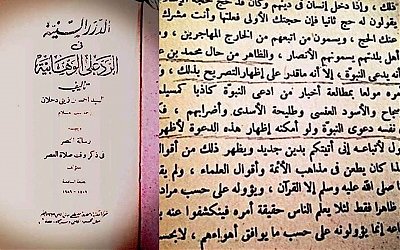 الدرر السنية
في
الرد على الوهابية
تأليف
السيد احمد بن زيني دحلان
رسالة النصر
في ذكر وقت صلاة العصر
ذلك ، وإذا دخل إنسان في دينهم وكان قد حج حجة
يقولون له حج ثانيا فإن حجتك الأولى فعلتها وأنت مشرك
الحج ، ويسمون من اتبعهم من الخارج المهاجرين ،
أهل بلدتهم يسمونهم الأنصار ، والظاهر من حال محمد بن
أنه يدعي النبوة ، إلا أنه ماقدر على إظهار التصريح بذلك
أمره مولعا بمطالعة أخبار من ادعى النبوة كاذبا كمسيلمة
سجاح والأسود العنسي وطليحة الأسدي وأضرابهم ، فكأ
نفسه دعوى النبوة ولو أمكنه إظهار هذه الدعوة لأظهر
يقول لأتباعه إني أتيتكم بدين جديد ويظهر ذلك من
لهذا كان يطعن في مذاهب الأئمة وأقوال العلماء ، ولم يق
صلى الله عليه وسلم إلا القرآن ، ويؤوله على حسب مراد
ظاهرا فقط لئلا يعلم الناس حقيقة أمره فينكشفوا عنه
إنما يؤولونه على حسب ما يوافق أهواءهم ،